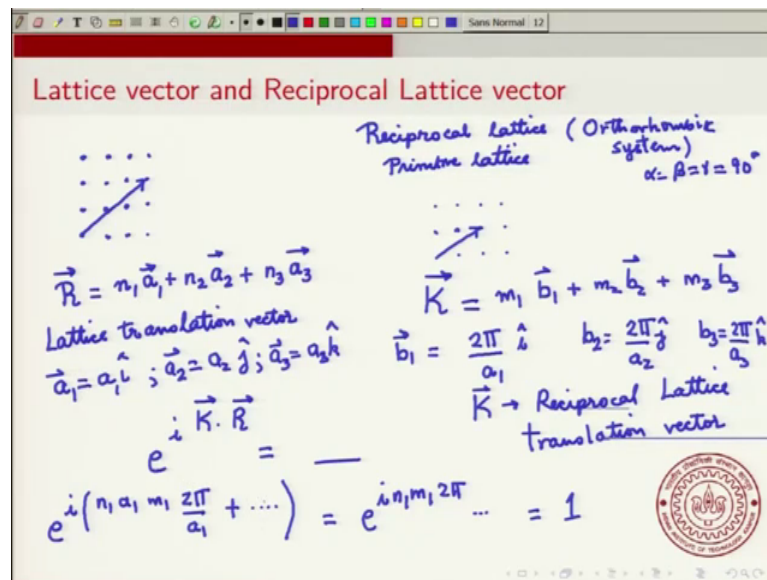 Sans Normal 12
Lattice vector and Reciprocal Lattice vector
Reciprocal lattice (Orthorhombic system)
Primitive lattice
α = β = γ = 90°
R⃗ = n₁a⃗₁ + n₂a⃗₂ + n₃a⃗₃
K⃗ = m₁ b⃗₁ + m₂ b⃗₂ + m₃ b⃗₃
Lattice translation vector
a⃗₁ = a₁î ; a⃗₂ = a₂ ĵ ; a⃗₃ = a₃k̂
b⃗₁ = 2π/a₁ î b₂ = 2π/a₂ ĵ b₃ = 2π/a₃ k̂
K⃗ → Reciprocal Lattice
translation vector
e^{i K⃗·R⃗} = __
e^{i(n₁ a₁ m₁ 2π/a₁ + ....)} = e^{i n₁ m₁ 2π ...} = 1